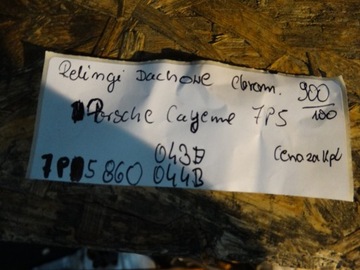 Relingi Dachowe chrom. 900
100
Porsche Cayenne 7P5
043D Cena za kpl
7P5 860 044B